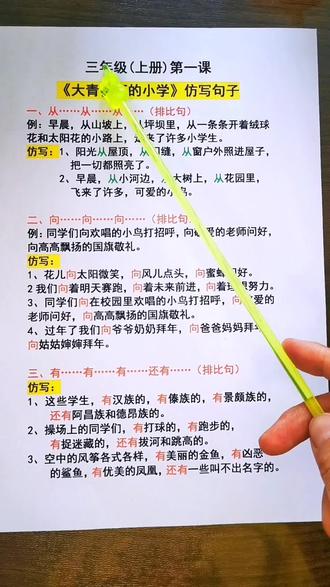 三年级(上册)第一课
《大青 的小学》仿写句子
一、从……从……从……(排比句)
例：早晨，从山坡上， 坪坝里，从一条条开着绒球
花和太阳花的小路上， 来了许多小学生。
仿写：1、阳光从屋顶，从 缝，从窗户外照进屋子，
把一切都照亮了。
2、早晨，从小河边， 大树上，从花园里，
飞来了许多，可爱的小鸟。
二、向……向……向……(排比句)
例：同学们向欢唱的小鸟打招呼，向 爱的老师问好，
向高高飘扬的国旗敬礼。
仿写：
1、花儿向太阳微笑，向风儿点头，向蜜 问好。
2 我们向着明天赛跑，向着未来前进，向着 想努力。
3、同学们向在校园里欢唱的小鸟打招呼，向 爱的
老师问好，向高高飘扬的国旗敬礼。
4、过年了我们向爷爷奶奶拜年，向爸爸妈妈拜年
向姑姑婶婶拜年。
三、有……有……有…还有……(排比句)
仿写：
1、这些学生，有汉族的，有傣族的，有景颇族的，
还有阿昌族和德昂族的。
2、操场上的同学们，有打球的，有跑步的，
有捉迷藏的，还有拔河和跳高的。
3、空中的风筝各式各样，有美丽的金鱼，有凶恶
的鲨鱼，有优美的凤凰，还有一些叫不出名字的。